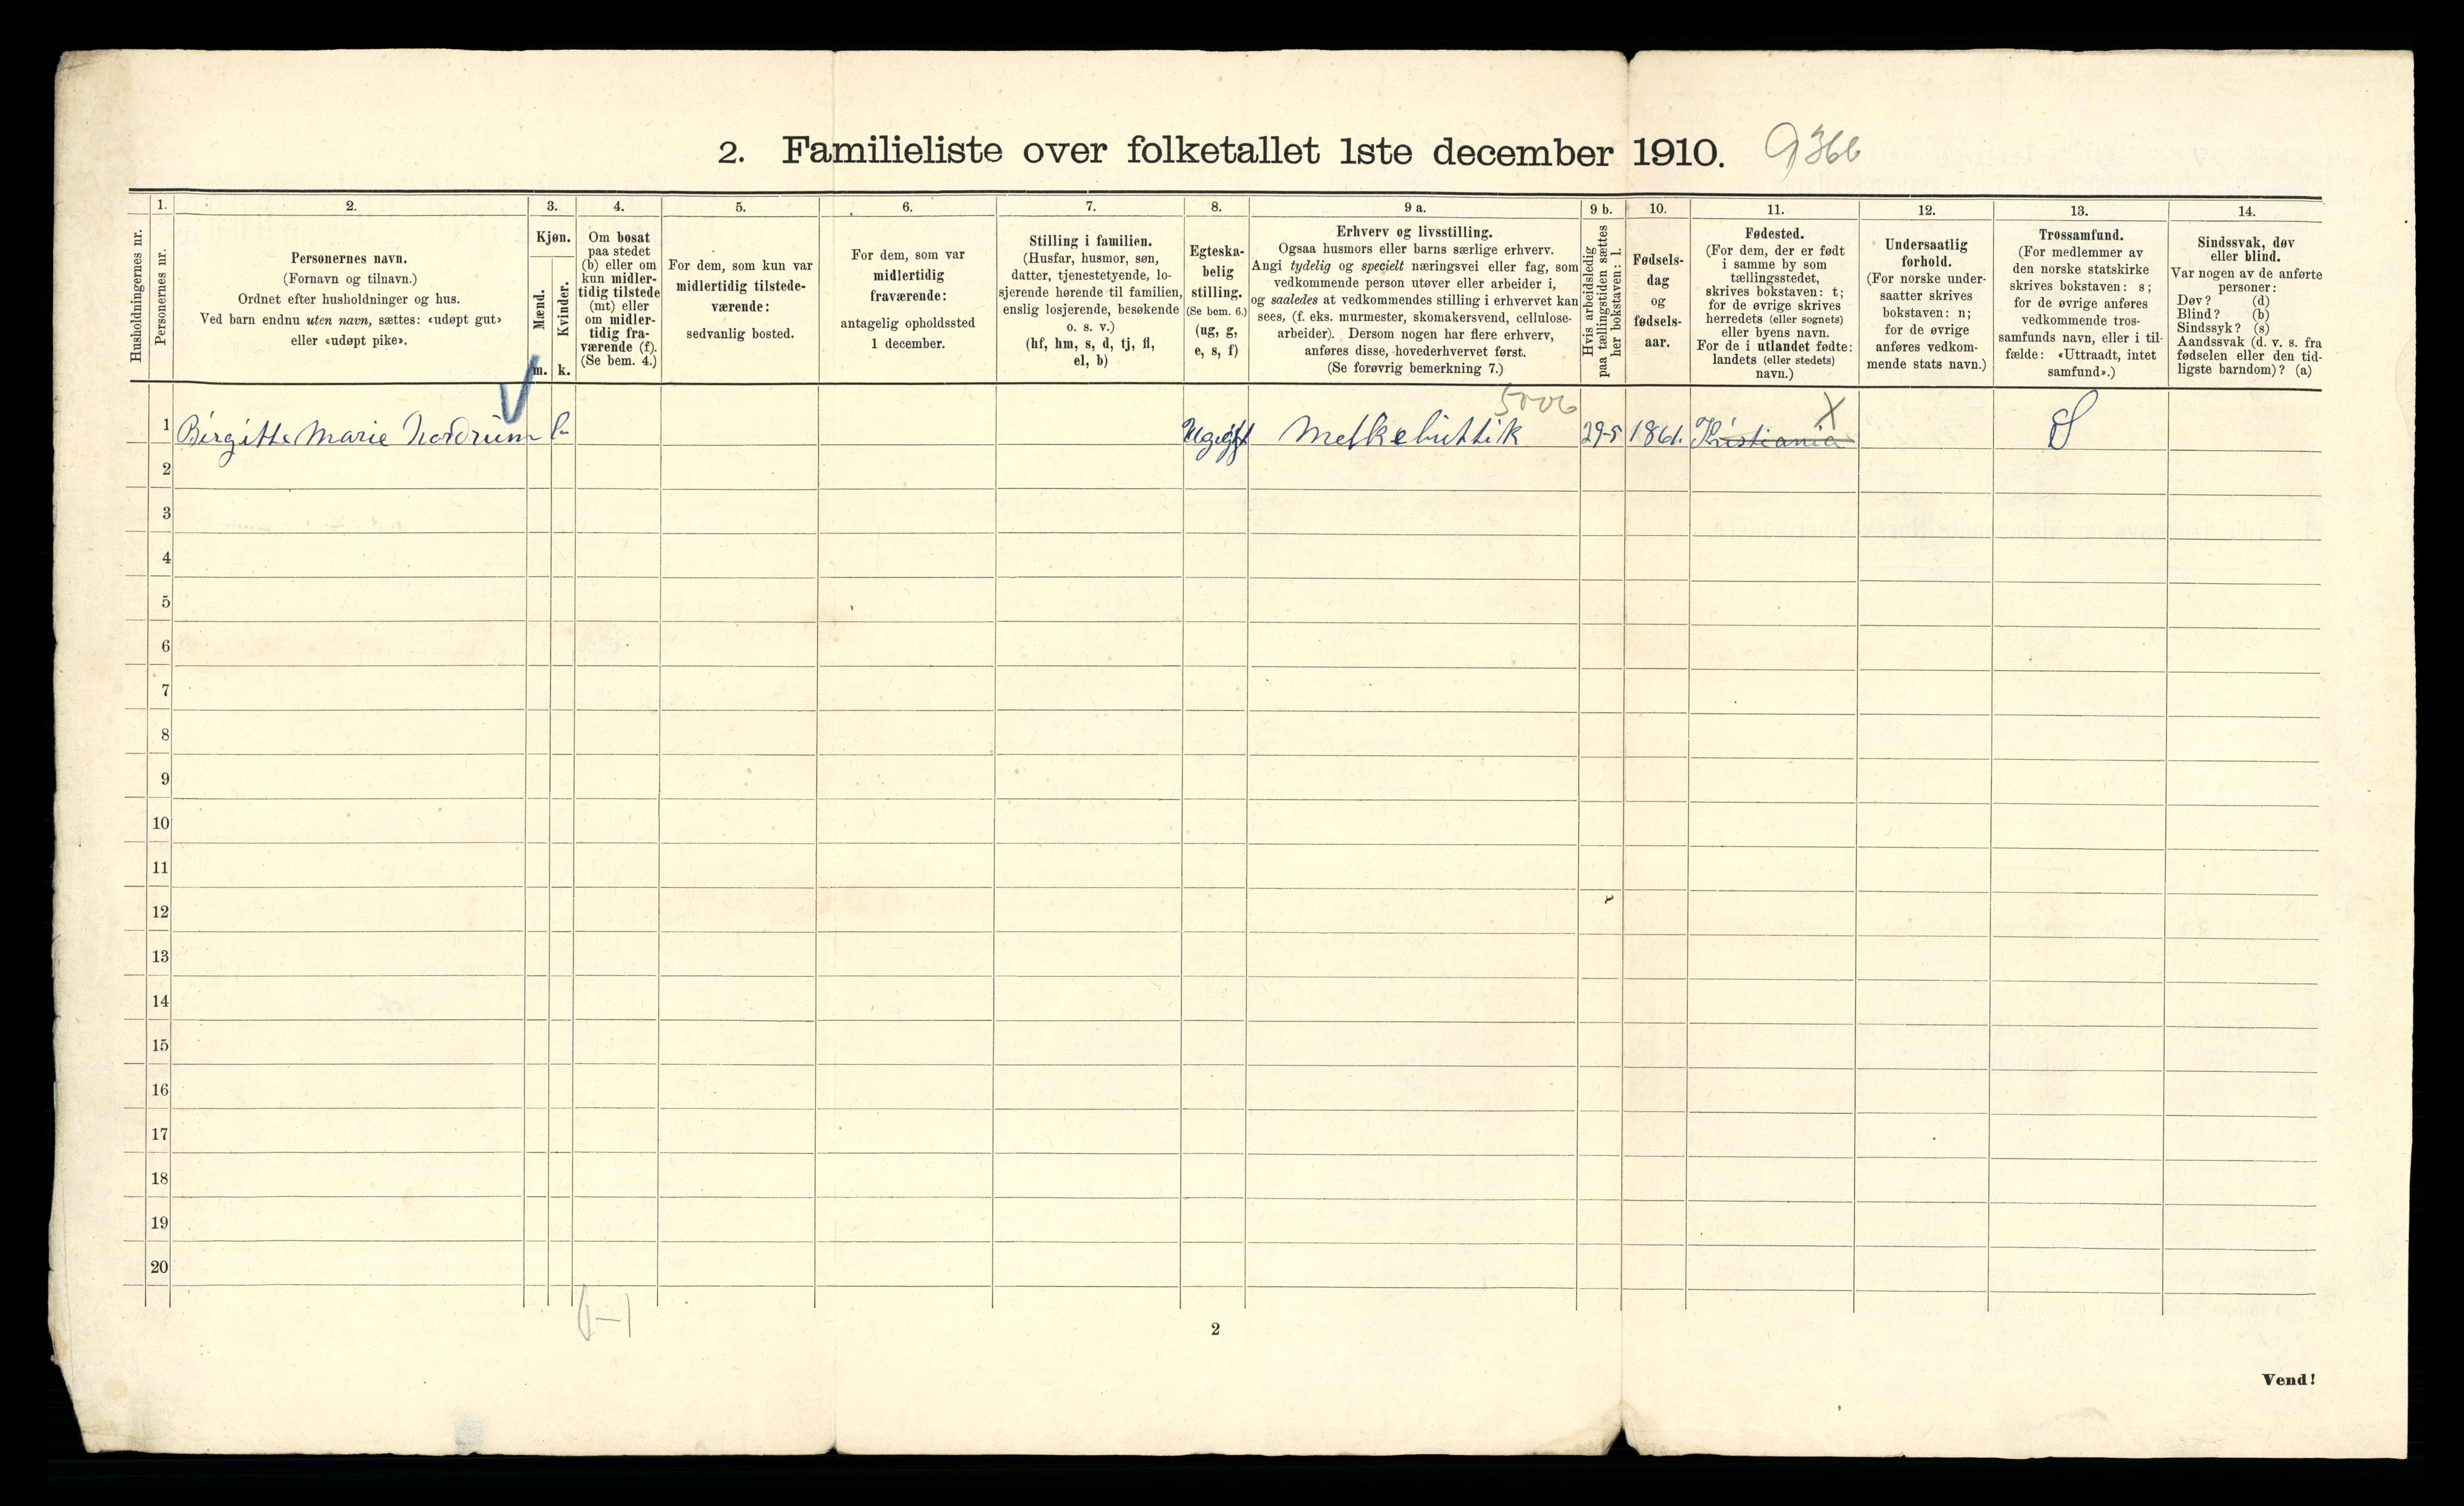 2. Familieliste over folketallet 1ste december 1910. 9366
Husholdningernes nr.
1.
Personernes nr.
2.
Personernes navn.
(Fornavn og tilnavn.)
Ordnet efter husholdninger og hus.
Ved barn endnu uten navn, sættes: «udøpt gut»
eller «udøpt pike».
3.
Kjøn.
Mænd.
Kvinder.
m. k.
4.
Om bosat
paa stedet
(b) eller om
kun midler-
tidig tilstede
(mt) eller
om midler-
tidig fra-
værende (f).
(Se bem. 4.)
5.
For dem, som kun var
midlertidig tilstede-
værende:
sedvanlig bosted.
6.
For dem, som var
midlertidig
fraværende:
antagelig opholdssted
1 december.
7.
Stilling i familien.
(Husfar, husmor, søn,
datter, tjenestetyende, lo-
sjerende hørende til familien,
enslig losjerende, besøkende
o. s. v.)
(hf, hm, s, d, tj, fl,
el, b)
8.
Egteska-
belig
stilling.
(Se bem. 6.)
(ug, g,
e, s, f)
9 a.
Erhverv og livsstilling.
Ogsaa husmors eller barns særlige erhverv.
Angi tydelig og specielt næringsvei eller fag, som
vedkommende person utøver eller arbeider i,
og saaledes at vedkommendes stilling i erhvervet kan
sees, (f. eks. murmester, skomakersvend, cellulose-
arbeider). Dersom nogen har flere erhverv,
anføres disse, hovederhvervet først.
(Se forøvrig bemerkning 7.)
9 b.
Hvis arbeidsledig
paa tællingstiden sættes
her bokstaven: l.
10.
Fødsels-
dag
og
fødsels-
aar.
11.
Fødested.
(For dem, der er født
i samme by som
tællingsstedet,
skrives bokstaven: t;
for de øvrige skrives
herredets (eller sognets)
eller byens navn.
For de i utlandet fødte:
landets (eller stedets)
navn.)
12.
Undersaatlig
forhold.
(For norske under-
saatter skrives
bokstaven: n;
for de øvrige
anføres vedkom-
mende stats navn.)
13.
Trossamfund.
(For medlemmer av
den norske statskirke
skrives bokstaven: s;
for de øvrige anføres
vedkommende tros-
samfunds navn, eller i til-
fælde: «Uttraadt, intet
samfund».)
14.
Sindssvak, døv
eller blind.
Var nogen av de anførte
personer:
Døv? (d)
Blind? (b)
Sindssyk? (s)
Aandssvak (d. v. s. fra
fødselen eller den tid-
ligste barndom)? (a)
1 Birgitte Marie Nordrum k Ugift Melkebuttik 29-5 1861. Kristiania X S
2
3
4
5
6
7
8
9
10
11
12
13
14
15
16
17
18
19
20
0-1
2
Vend!